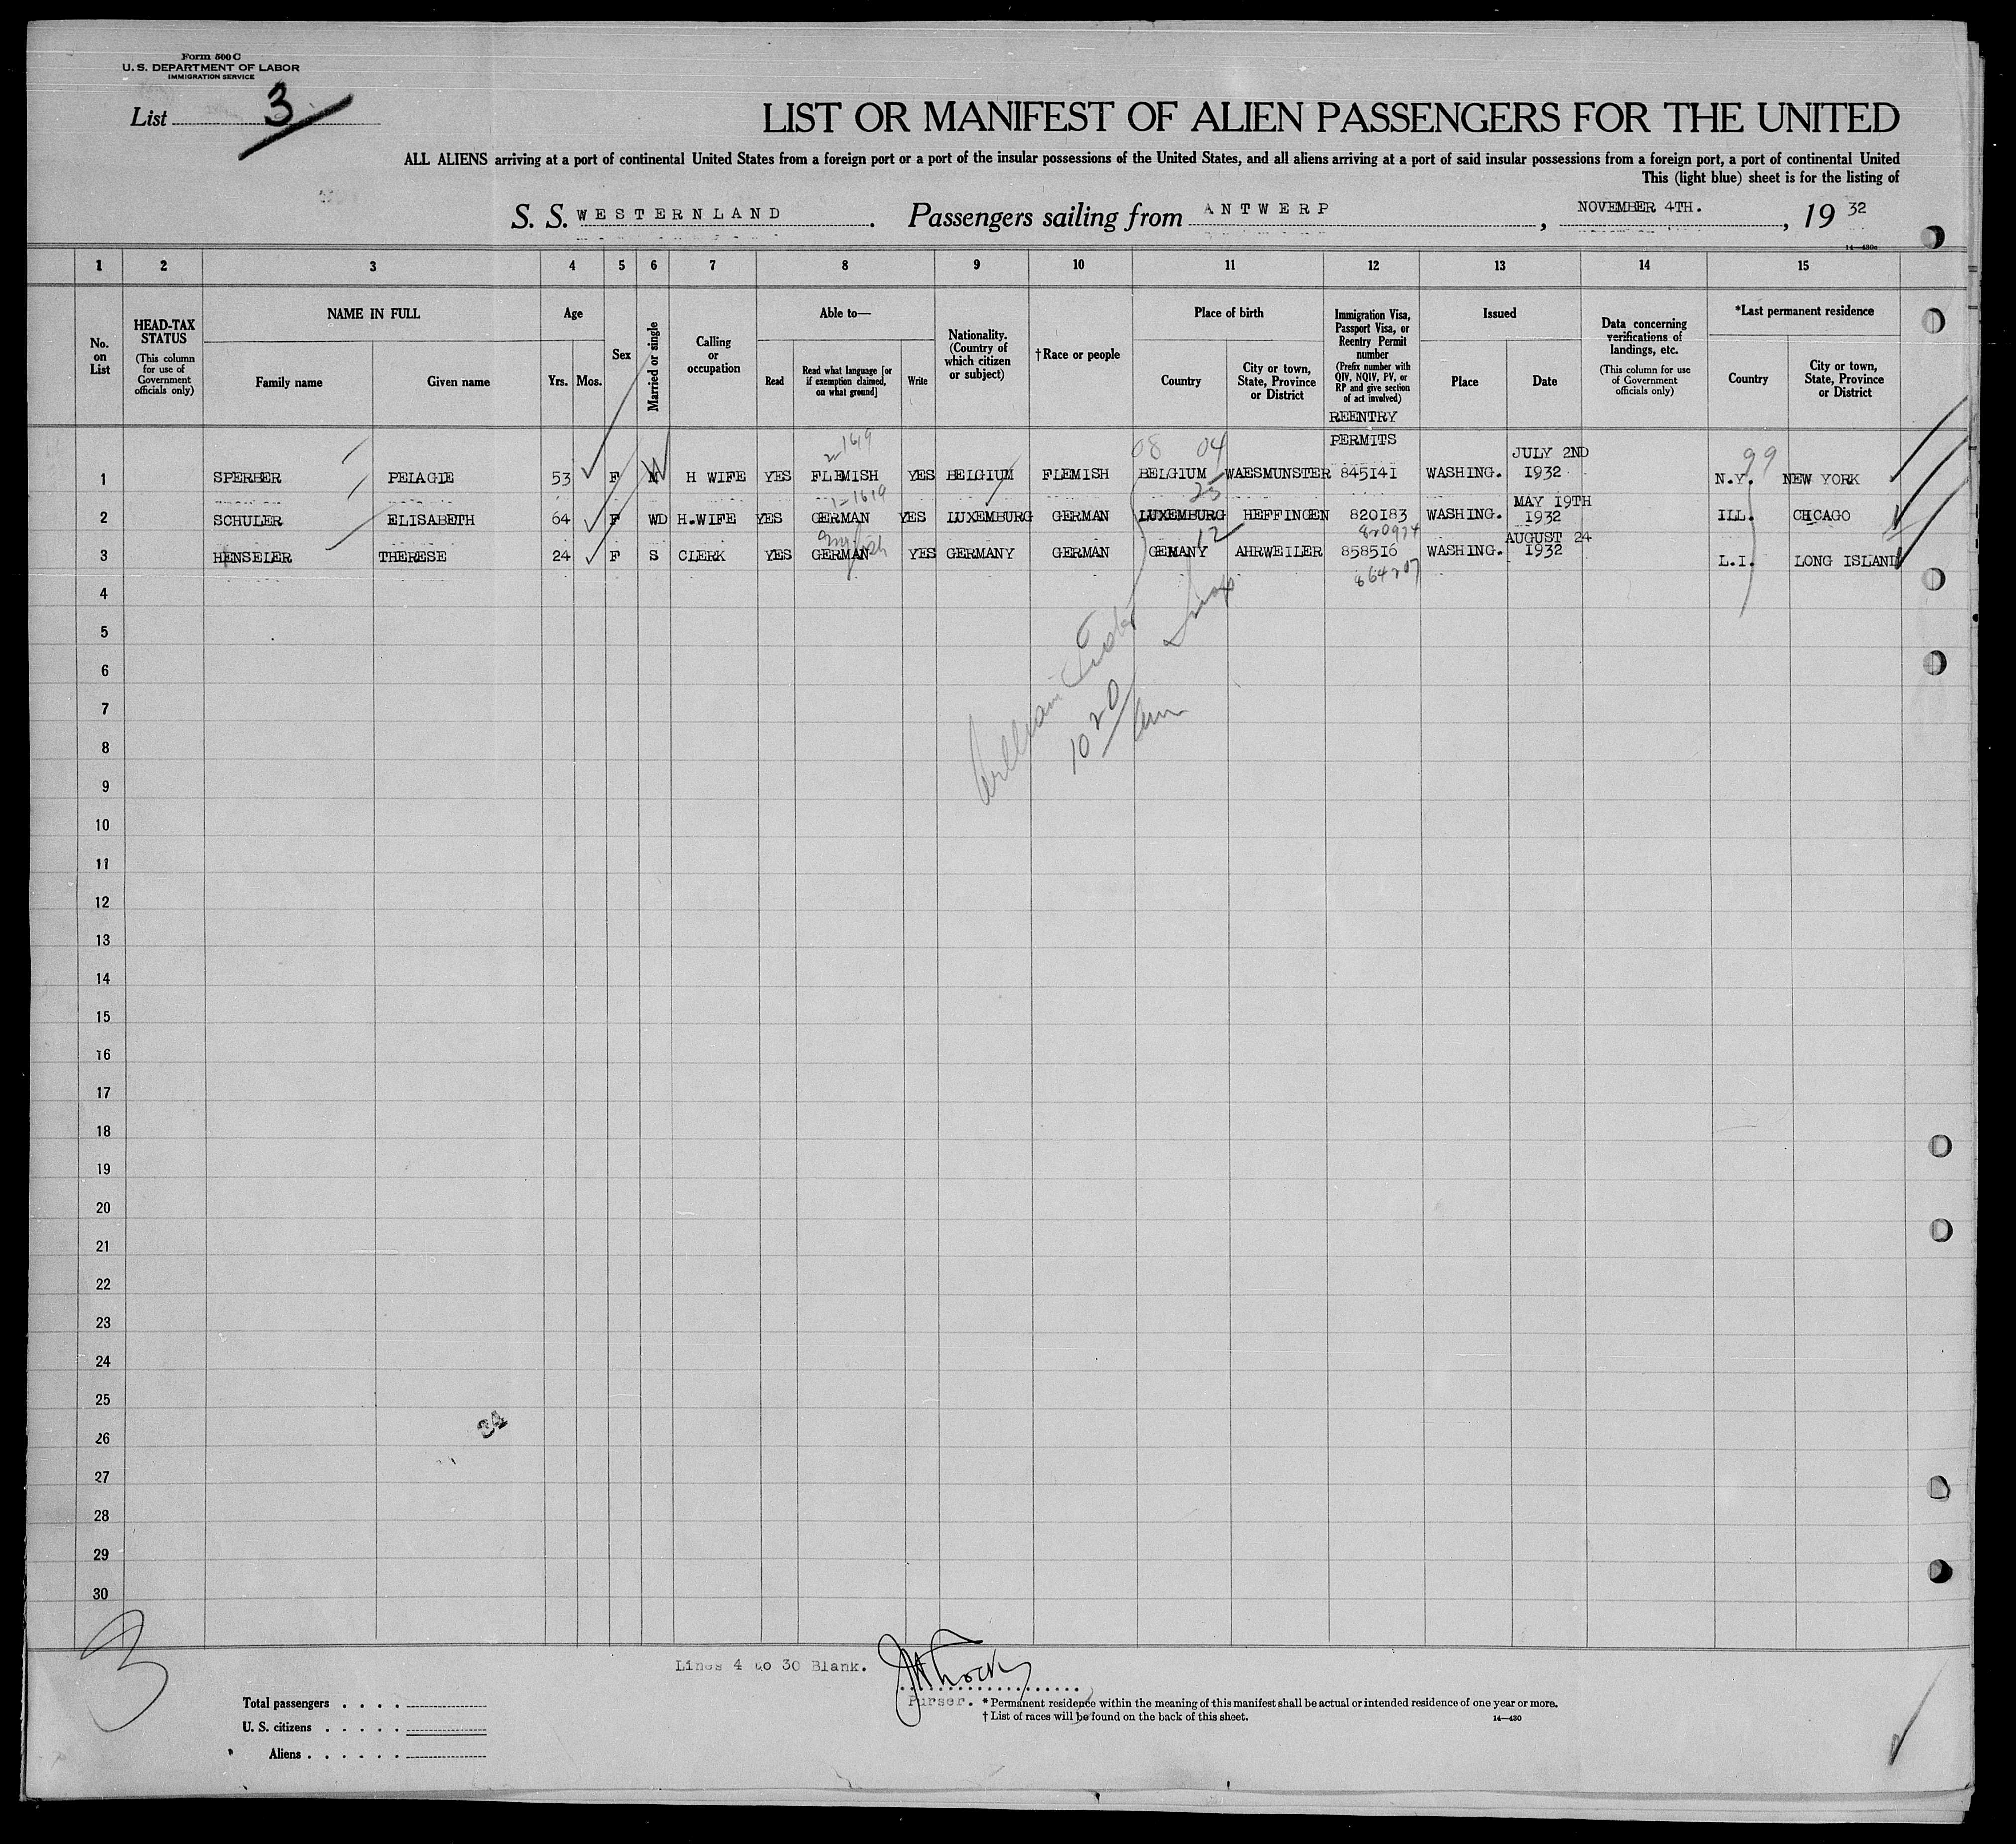 Form 500 C
U. S. DEPARTMENT OF LABOR
IMMIGRATION SERVICE
List 3
LIST OR MANIFEST OF ALIEN PASSENGERS FOR THE UNITED
ALL ALIENS arriving at a port of continental United States from a foreign port or a port of the insular possessions of the United States, and all aliens arriving at a port of said insular possessions from a foreign port, a port of continental United
This (light blue) sheet is for the listing of
S. S. WESTERNLAND. Passengers sailing from ANTWERP, NOVEMBER 4TH., 19 32
14—430a
1 2 3 4 5 6 7 8 9 10 11 12 13 14 15
No. on List
HEAD-TAX STATUS
(This column for use of Government officials only)
NAME IN FULL
Family name
Given name
Age
Yrs. Mos.
Sex
Married or single
Calling or occupation
Able to—
Read
Read what language [or if exemption claimed, on what ground]
Write
Nationality. (Country of which citizen or subject)
†Race or people
Place of birth
Country
City or town, State, Province or District
Immigration Visa, Passport Visa, or Reentry Permit number
(Prefix number with QIV, NQIV, PV, or RP and give section of act involved)
Issued
Place
Date
Data concerning verifications of landings, etc.
(This column for use of Government officials only)
*Last permanent residence
Country
City or town, State, Province or District
REENTRY
PERMITS
08 04 99
1 SPERBER PELAGIE 53 F M W H WIFE YES FLEMISH YES BELGIUM FLEMISH BELGIUM WAESMUNSTER 845141 WASHING. JULY 2ND 1932 N.Y. NEW YORK
25
2 SCHULER ELISABETH 64 F WD H.WIFE YES GERMAN YES LUXEMBURG GERMAN LUXEMBURG HEFFINGEN 820183 WASHING. MAY 19TH 1932 ILL. CHICAGO
English 12 820974
3 HENSELER THERESE 24 F S CLERK YES GERMAN YES GERMANY GERMAN GEMANY AHRWEILER 858516 WASHING. AUGUST 24 1932 L.I. LONG ISLAND
864207
4
5
6
William
10 20
7
8
9
10
11
12
13
14
15
16
17
18
19
20
21
22
23
24
25
34
26
27
28
29
30
3
Lines 4 to 30 Blank.
Purser.
Total passengers
U. S. citizens
Aliens
* Permanent residence within the meaning of this manifest shall be actual or intended residence of one year or more.
† List of races will be found on the back of this sheet.
14—430